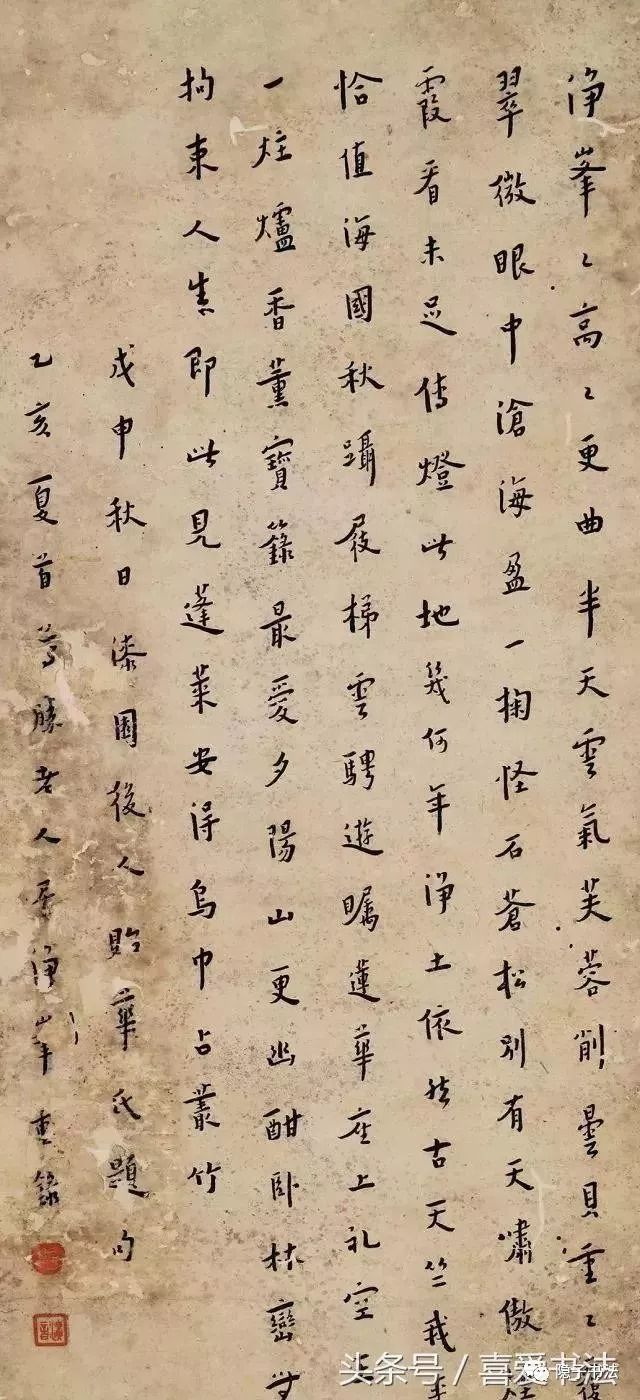 淨峯〻高〻更曲半天雲氣芙蓉削曇貝重〻獲
翠微眼中滄海盈一掬怪石蒼松別有天嘯傲煙
霞看未足傳燈此地幾何年淨土依然古天竺我來
恰值海國秋躡屐梯雲騁遊矚蓮華座上礼空王
一炷爐香薰寶籙最愛夕陽山更幽酣卧林巒
拘束人生即此見蓬萊安得烏巾占叢竹
戊申秋日漆園後人貽華氏題句
乙亥夏首尊勝老人居淨峯重錄
头条号／喜爱书法
隐子书法